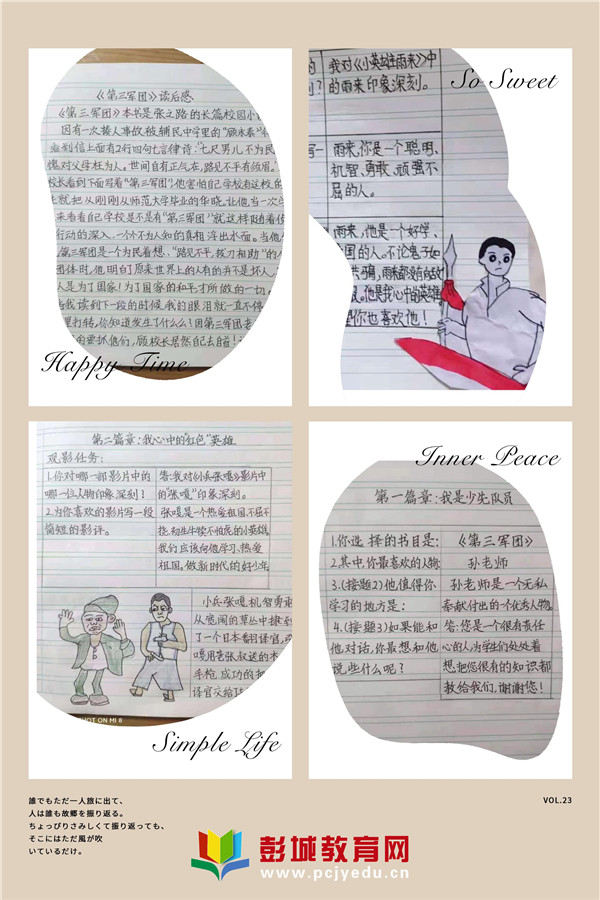 《第三军团》读后感
《第三军团》本书是张之路的长篇校园小
因有一次揍人事故,被辅民中学里的“顾永泰”
到信上面有2行四句七言律诗:“七尺男儿不为民
愧对父母枉为人。世间自有正气在,路见不平有
校长看到下面写着“第三军团”,他害怕自己学校有这校的
就把从刚刚从师范大学毕业的华晓,让他当一次
来看看自己学校是不是有“第三军团”就这样
行动的深入,一个个不为人知的真相浮出水面。当他
第三军团是一个为民着想、“路见不平,拔刀相助”的
团体时,他明白了原来世界上的人有的并不是坏人,
人是为了国家!为了国家的和平才所做的一切
当我读到下一段的时候,我的眼泪就一直不停
里打转,你知道发生了什么么?因第三军团
要抓他们,顾校长居然自己去自首!
Happy Time
我对《小英雄雨来》中
的雨来印象深刻。
So Sweet
雨来,你是一个聪明、
机智、勇敢、顽强不
屈的人。
雨来,他是一个好学、
国的人。不论鬼子如
骗,雨来都没有
他是我心中的英雄
你也喜欢他!
第二篇章:我心中的“红色”英雄
观影任务:
1.你对哪一部影片中的
哪一位人物印象深刻?
答:我对《小兵张嘎》影片中
的“张嘎”印象深刻。
2.为你喜欢的影片写一段
简短的影评。
张嘎是一个热爱祖国、不屈不
挠、初生牛犊不怕虎的小英雄,
我们应该向他学习、热爱
祖国。做新时代的好少年。
小兵张嘎,机智勇敢
从宽阔的草丛中
了一个日本翻译官,
嘎用老张叔送的木
手枪,成功的把
译官交给了
SHOT ON MI 8
Simple Life
Inner Peace
第一篇章:我是少先队员
1.你选择的书目是:
《第三军团》
2.其中,你最喜欢的人物:
孙老师
3.(接题2)他值得你
学习的地方是:
孙老师是一个无私
奉献付出的一个优秀人物。
4.(接题3)如果能和
他对话,你最想和他
说些什么呢?
答:您是一个很有责任
心的人,为学生们处处着
想,把您很有的知识都
教给我们,谢谢您!
誰でもただ一人旅に出て、
人は誰も故郷を振り返る。
ちょっぴりさみしくて振り返っても、
そこにはただ風が吹
いているだけ。
VOL.23
彭城教育网
www.pcjyedu.cn